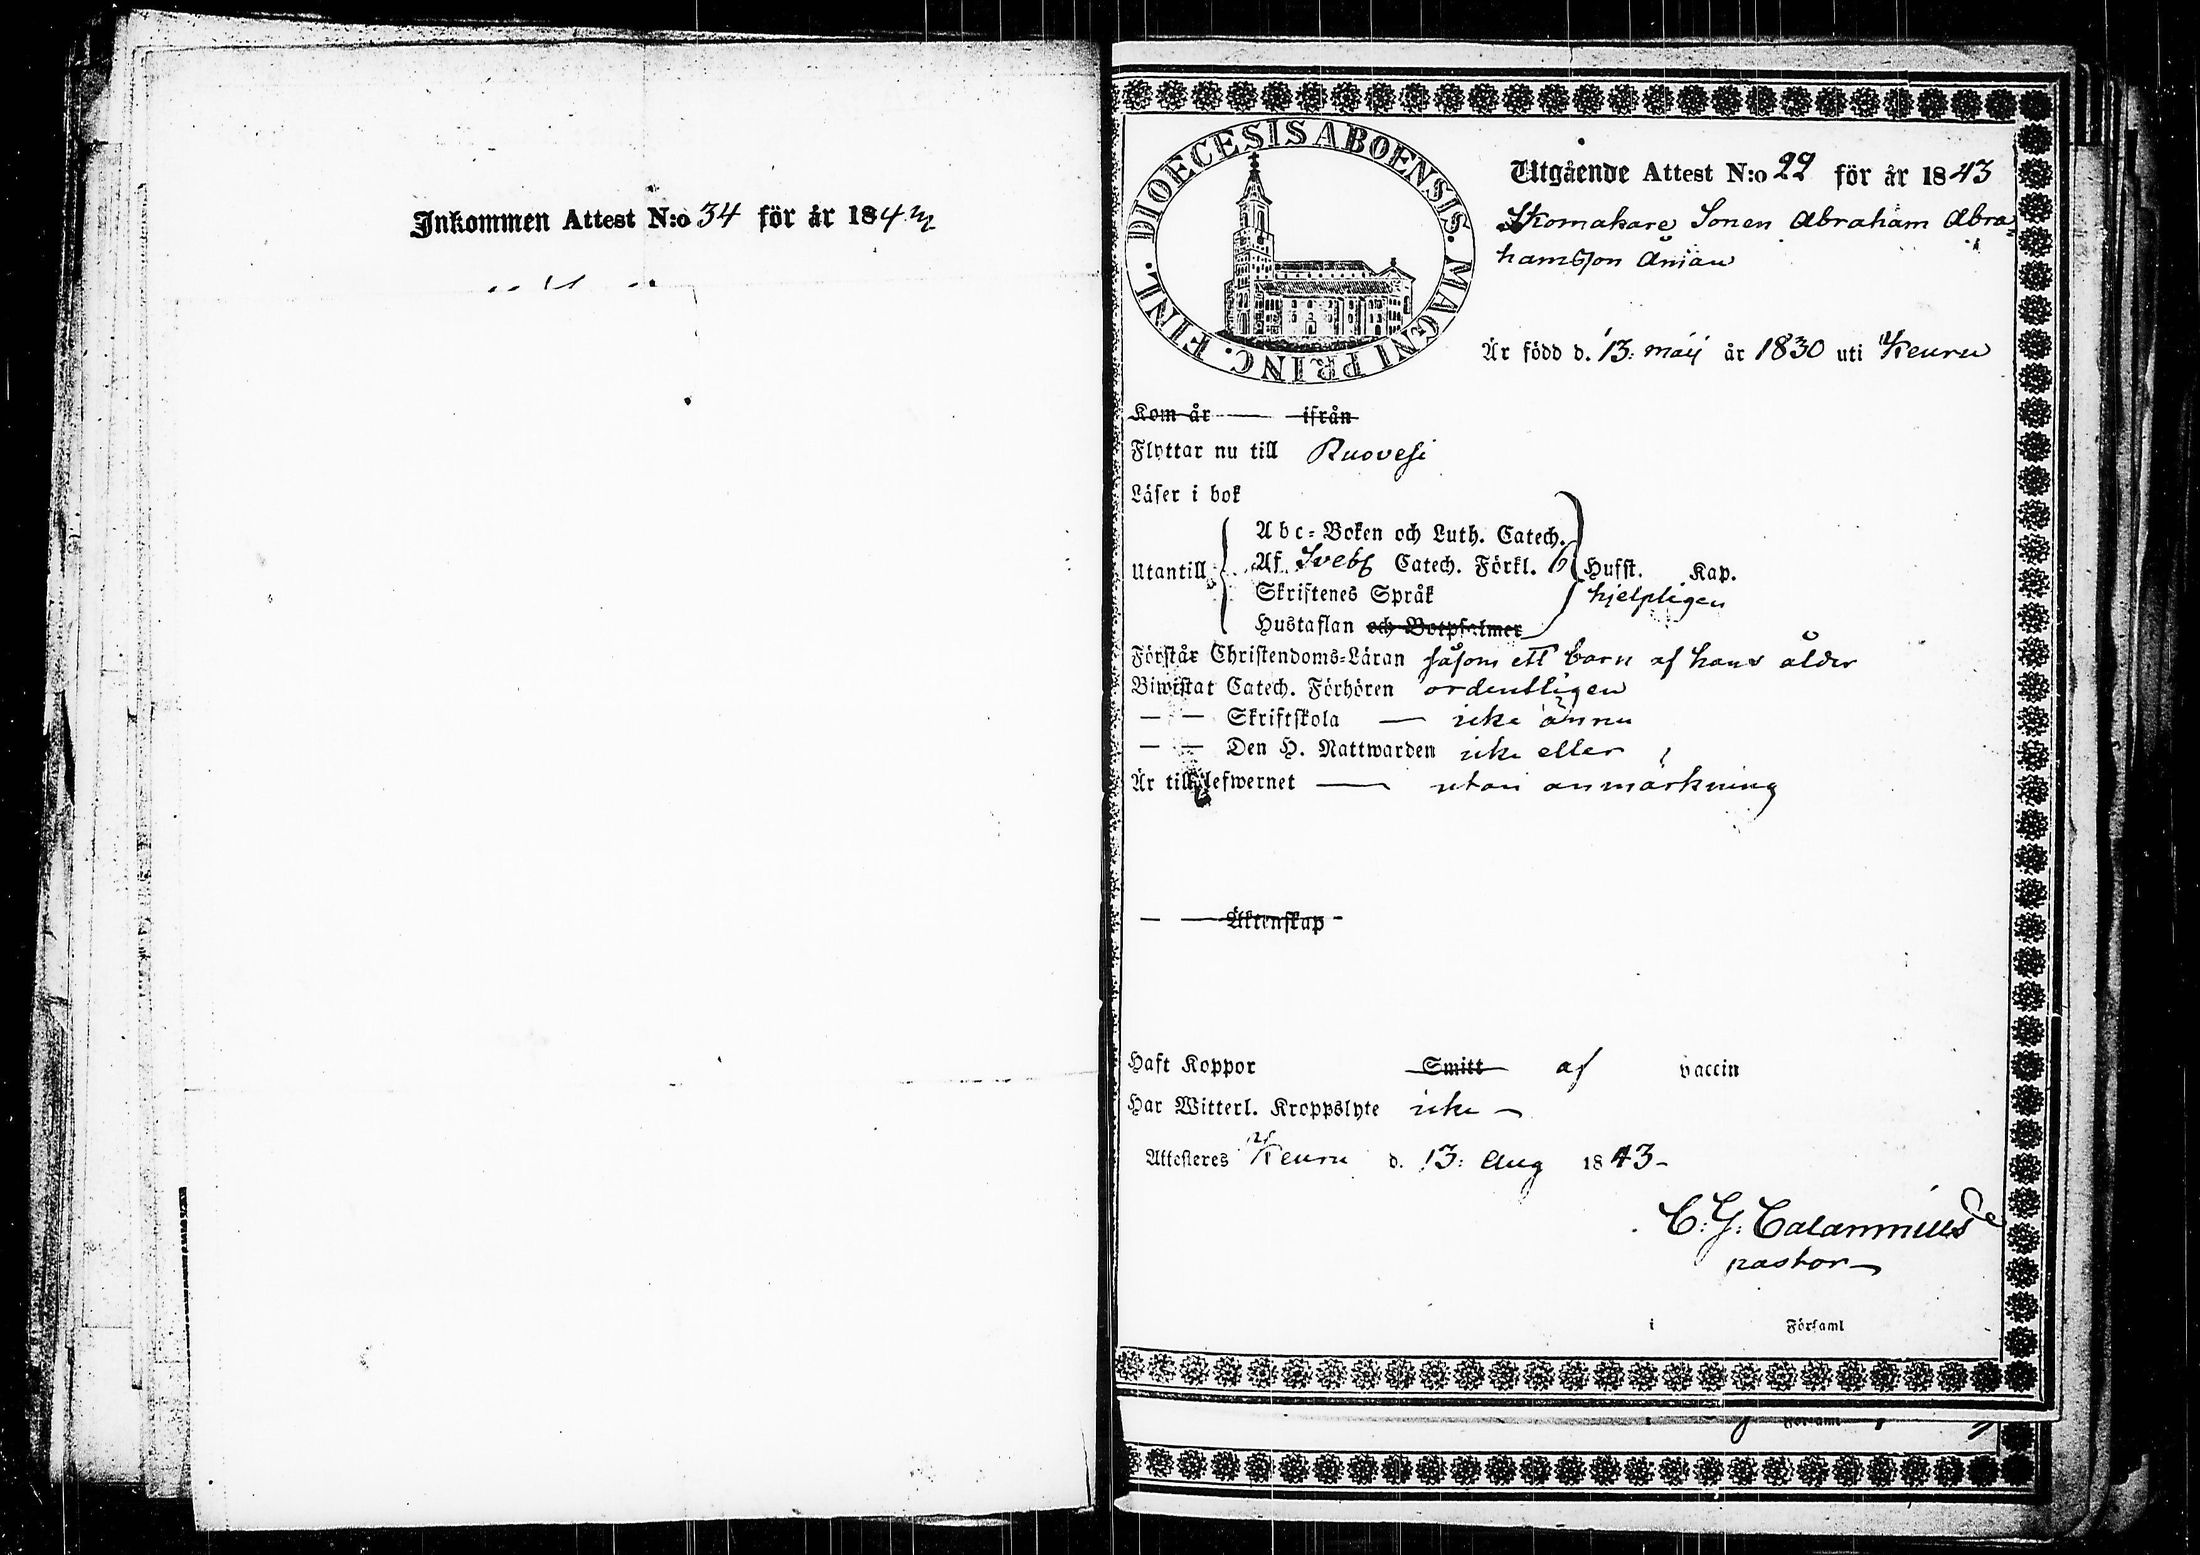 Inkommen Attest N:o 34 för år 184
DIOECESIS ABOENSIS. MAGNI PRINC. FINL.
Utgående Attest N:o 22 för år 1843
Skomakare Sonen Abraham Abra=
hamsson
Är född d. 13: maij år 1830 uti Keuru
Kom år — ifrån
Flyttar nu till Ruovesi
Läser i bok
Abc-Boken och Luth. Catech.
Utantill Af Sveb Catech. Förkl. 6 Husst. Kap.
Skriftenes Språk hjelpligen
Hustaflan och Botpsalmer
Förstår Christendoms-Läran såsom ett barn af hans ålder
Biwistat Catech. Förhören ordentligen
— — Skriftskola — icke ännu
— — Den H. Nattwarden icke eller
Är till lefwernet — utan anmärkning
— — Äktenskap -
Haft Koppor Smitt af vaccin
Har Witterl. Kroppslyte icke —
Attesteras Keuru d. 13: Aug 1843-
C: G: Calamnius
pastor
i Församl
Församl